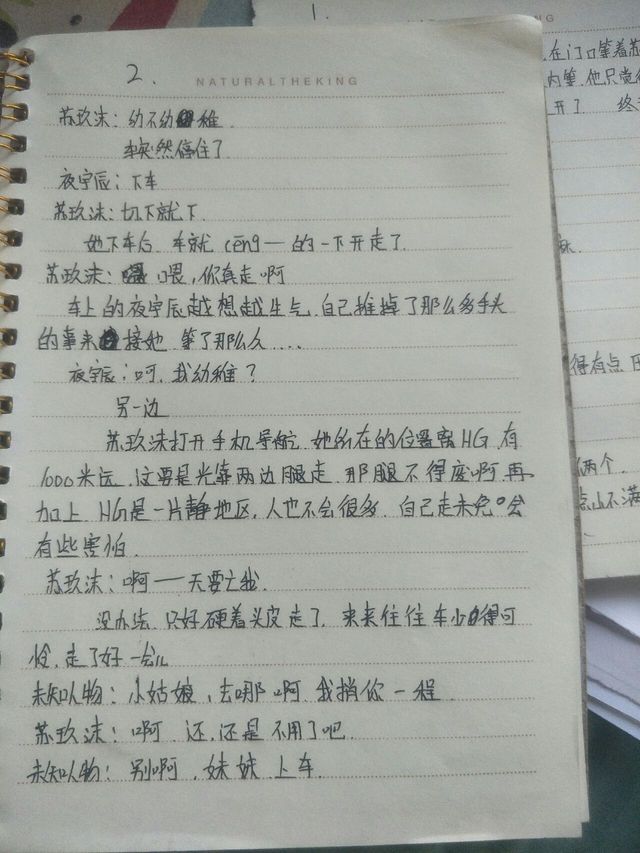 2.
NATURALTHEKING
苏玖沫：幼不幼稚
车突然停住了
夜宇辰：下车
苏玖沫：切下就下
她下车后 车就 cēng一 的一下开走了
苏玖沫：喂，你真走啊
车上的夜宇辰越想越生气，自己推掉了那么多手头
的事来接她 等了那么久 ....
夜宇辰：呵，我幼稚？
另一边
苏玖沫打开手机导航，她所在的位置离HG 有
1000米远，这要是光靠两边腿走，那腿不得废啊，再
加上，HG是一片静地区，人也不会很多，自己走未免 会
有些害怕
苏玖沫：啊一一天要亡我
没办法，只好硬着头皮走了，来来往往车少得可
怜，走了好一会儿
未知人物：小姑娘，去哪啊 我捎你一程
苏玖沫：啊 还，还是不用了吧
未知人物：别啊，妹妹 上车
1.
NG
在门口等着苏
开了 终
得有点
俩个